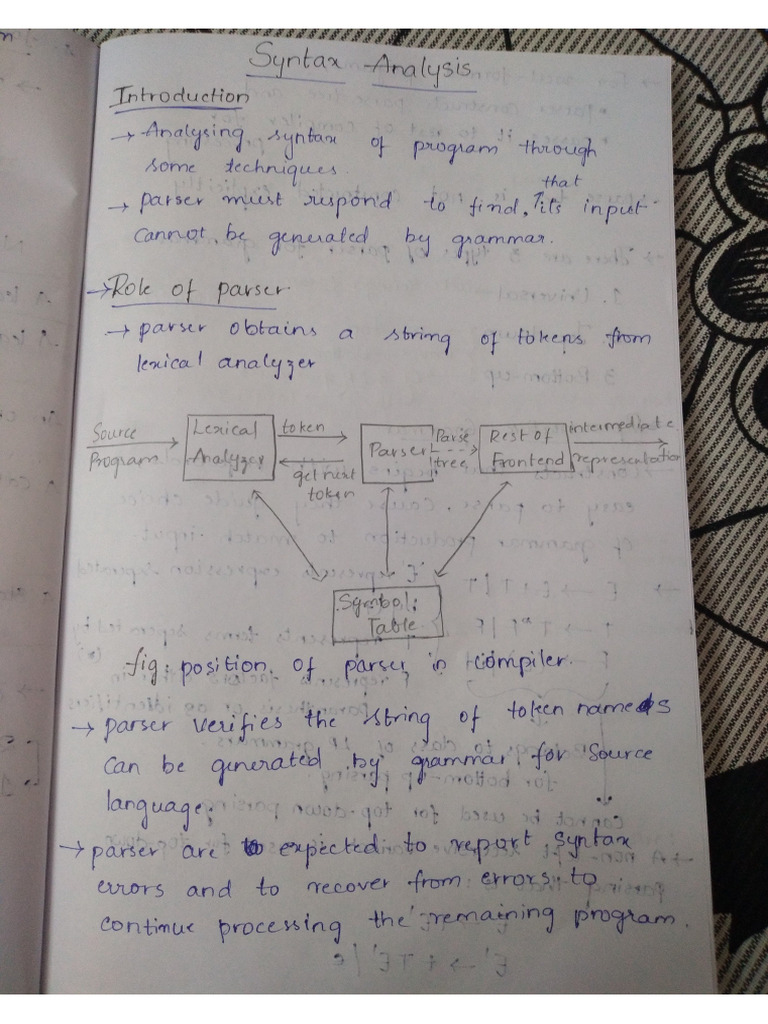 Syntax Analysis
Introduction
→ Analysing syntax of program through
some techniques.
that
→ parser must respond to find, its input
cannot be generated by grammar.
→ Role of parser.
→ parser obtains a string of tokens from
lexical analyzer
Source
Program
Lexical
Analyzer
token
get next
token
Parser
Parse
tree
Rest of
Frontend
intermediate
representation
Symbol
Table
fig: position of parser in compiler.
→ parser verifies the string of token names
can be generated by grammar for source
language.
→ parser are to expected to report syntax
errors and to recover from errors to
continue processing the remaining program.